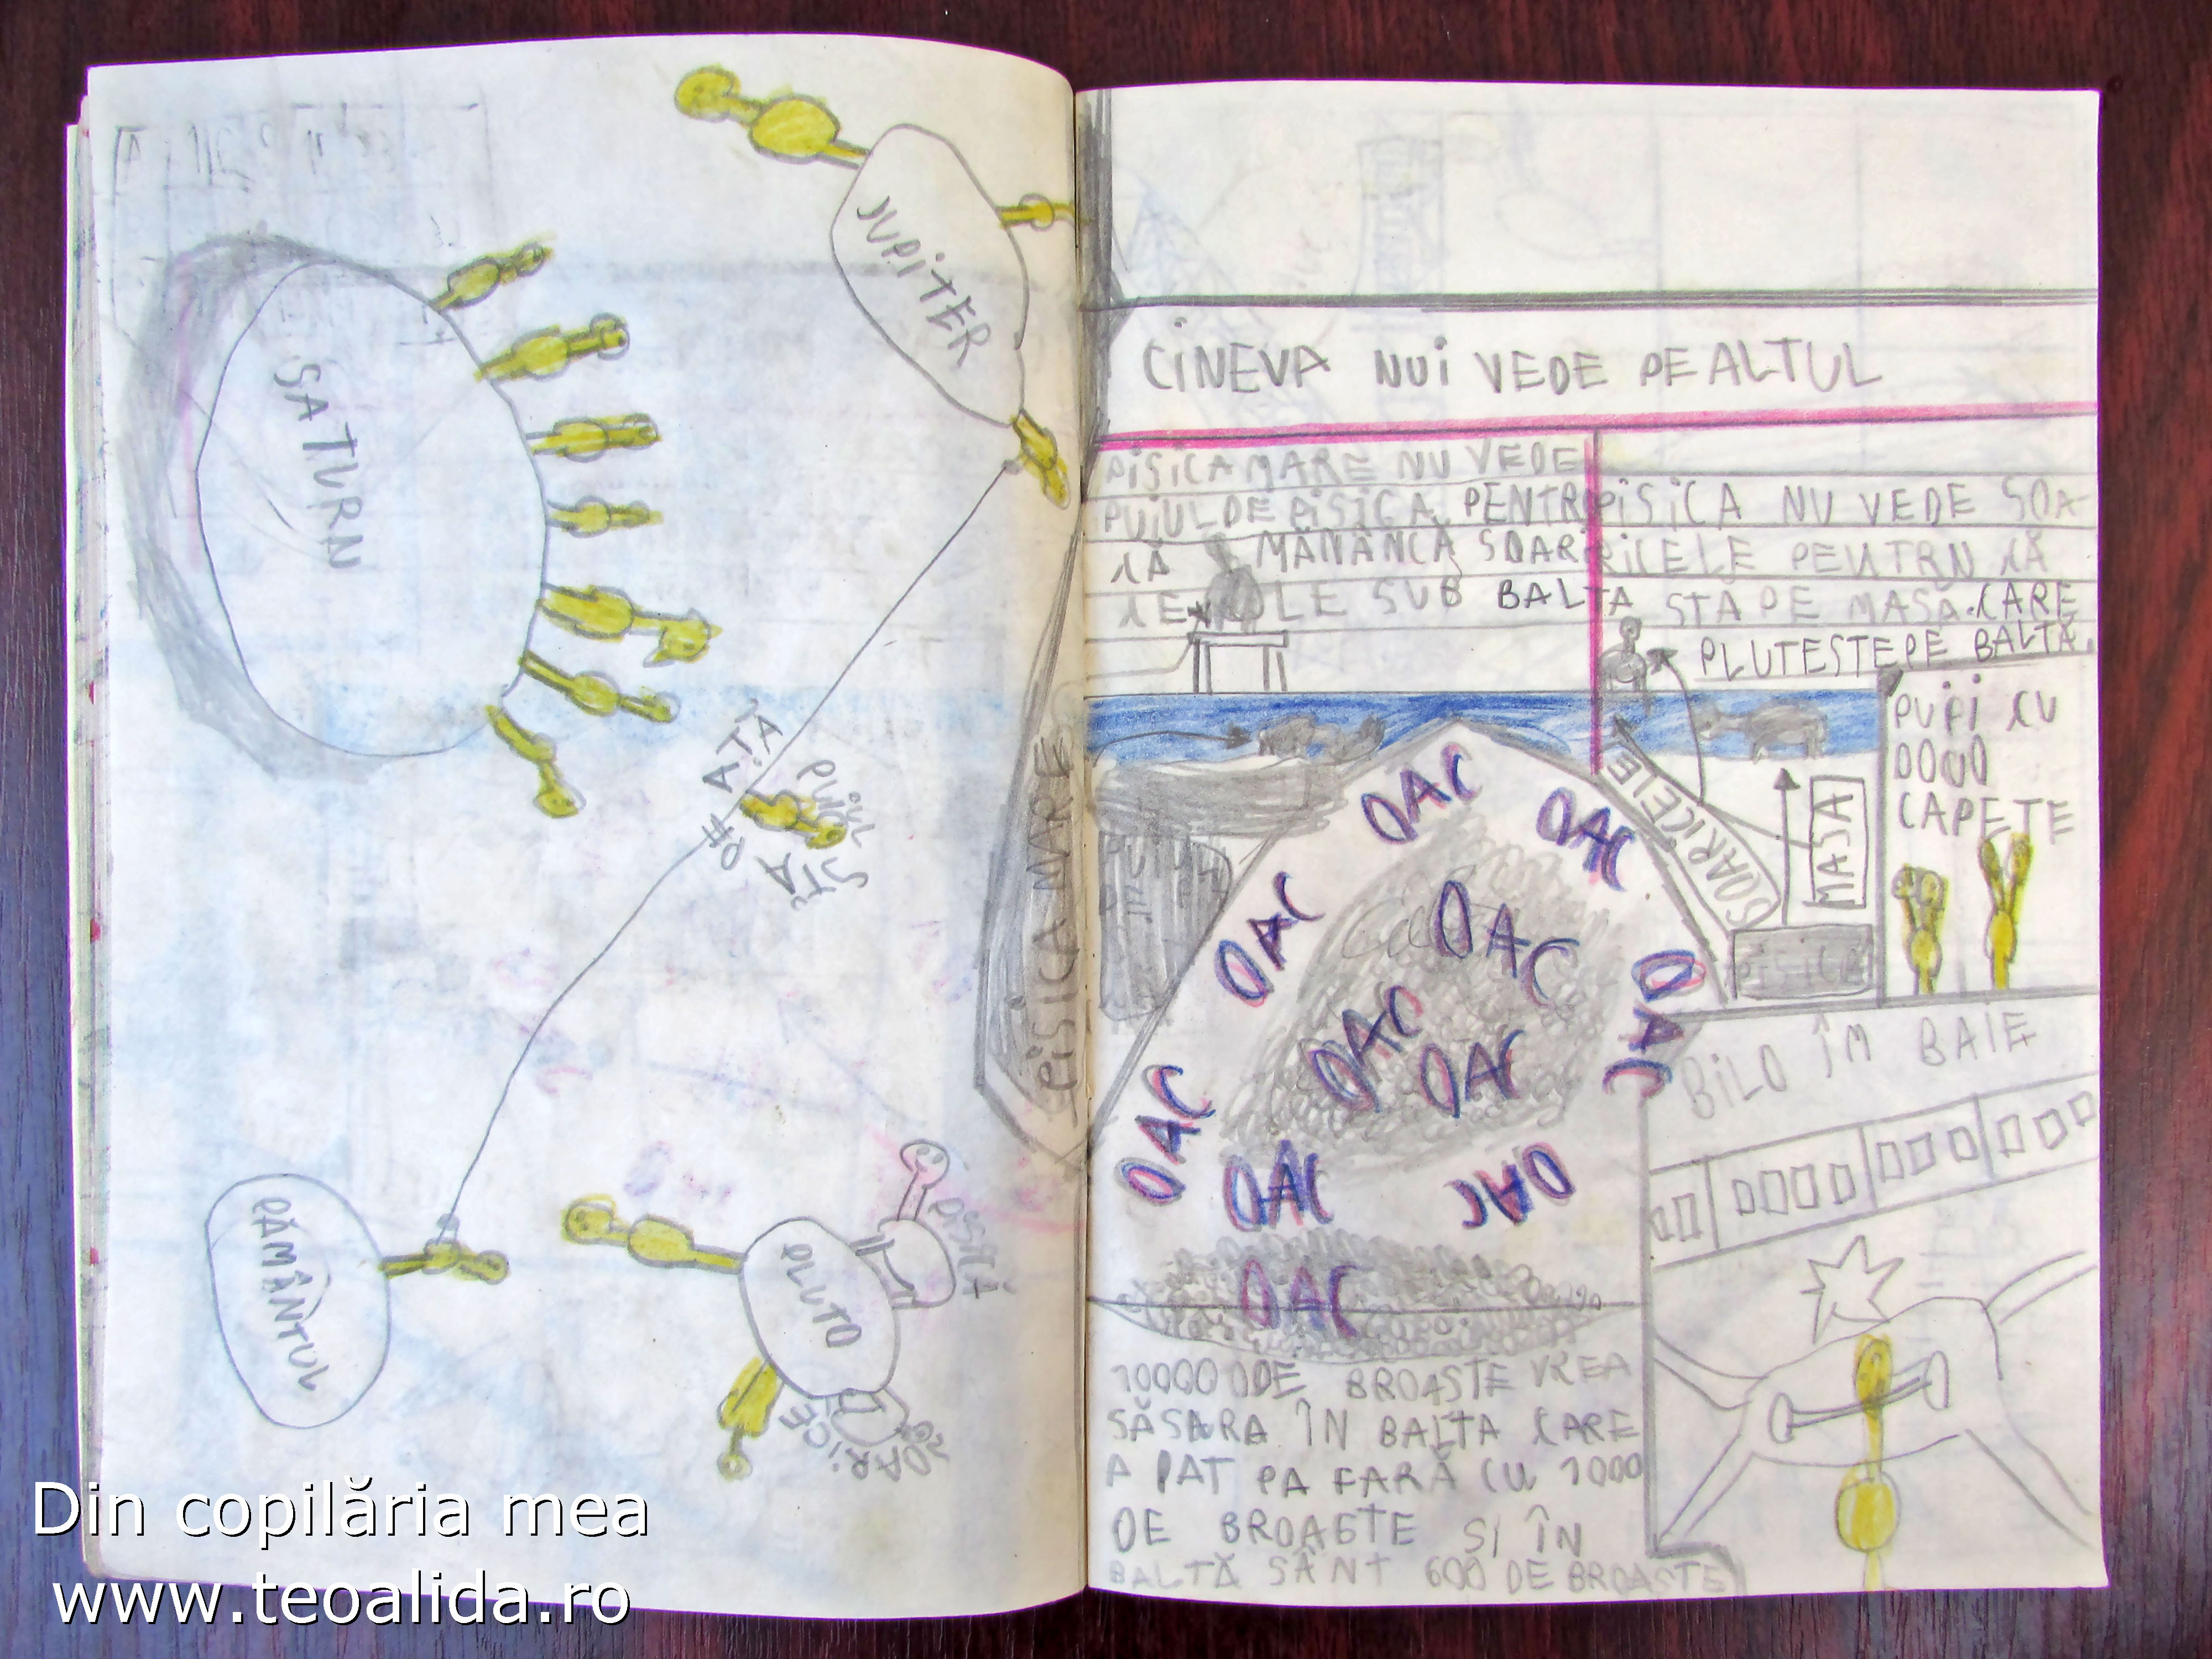 JUPITER
SATURN
AȚĂ
DE
PUIUL
STĂ
PISICA MARE
PĂMÂNTUL
PLUTO
PISICĂ
SOARICE
CINEVA NUI VEDE PE ALTUL
PISICA MARE NU VEDE
PUIUL DE PISICA PENTR
CĂ MĂNÂNCĂ SOARI
CELE SUB BALTA
PISICA NU VEDE SOA
RICELE PENTRU CĂ
STA PE MASĂ. CARE
PLUTESTE PE BALTĂ.
PUPI CU
DOUO
CAPETE
SOARICELE
MASA
PISICA
OAC
OAC
OAC
OAC
OAC
OAC
OAC
OAC
OAC
OAC
OAC
BILO ÎM BAIE
100000 DE BROASTE VREA
SĂ SARA ÎN BALTA CARE
A PAT PA FARĂ CU 1000
DE BROASTE SI ÎN
BALTĂ SÂNT 600 DE BROASTE
Din copilăria mea
www.teoalida.ro